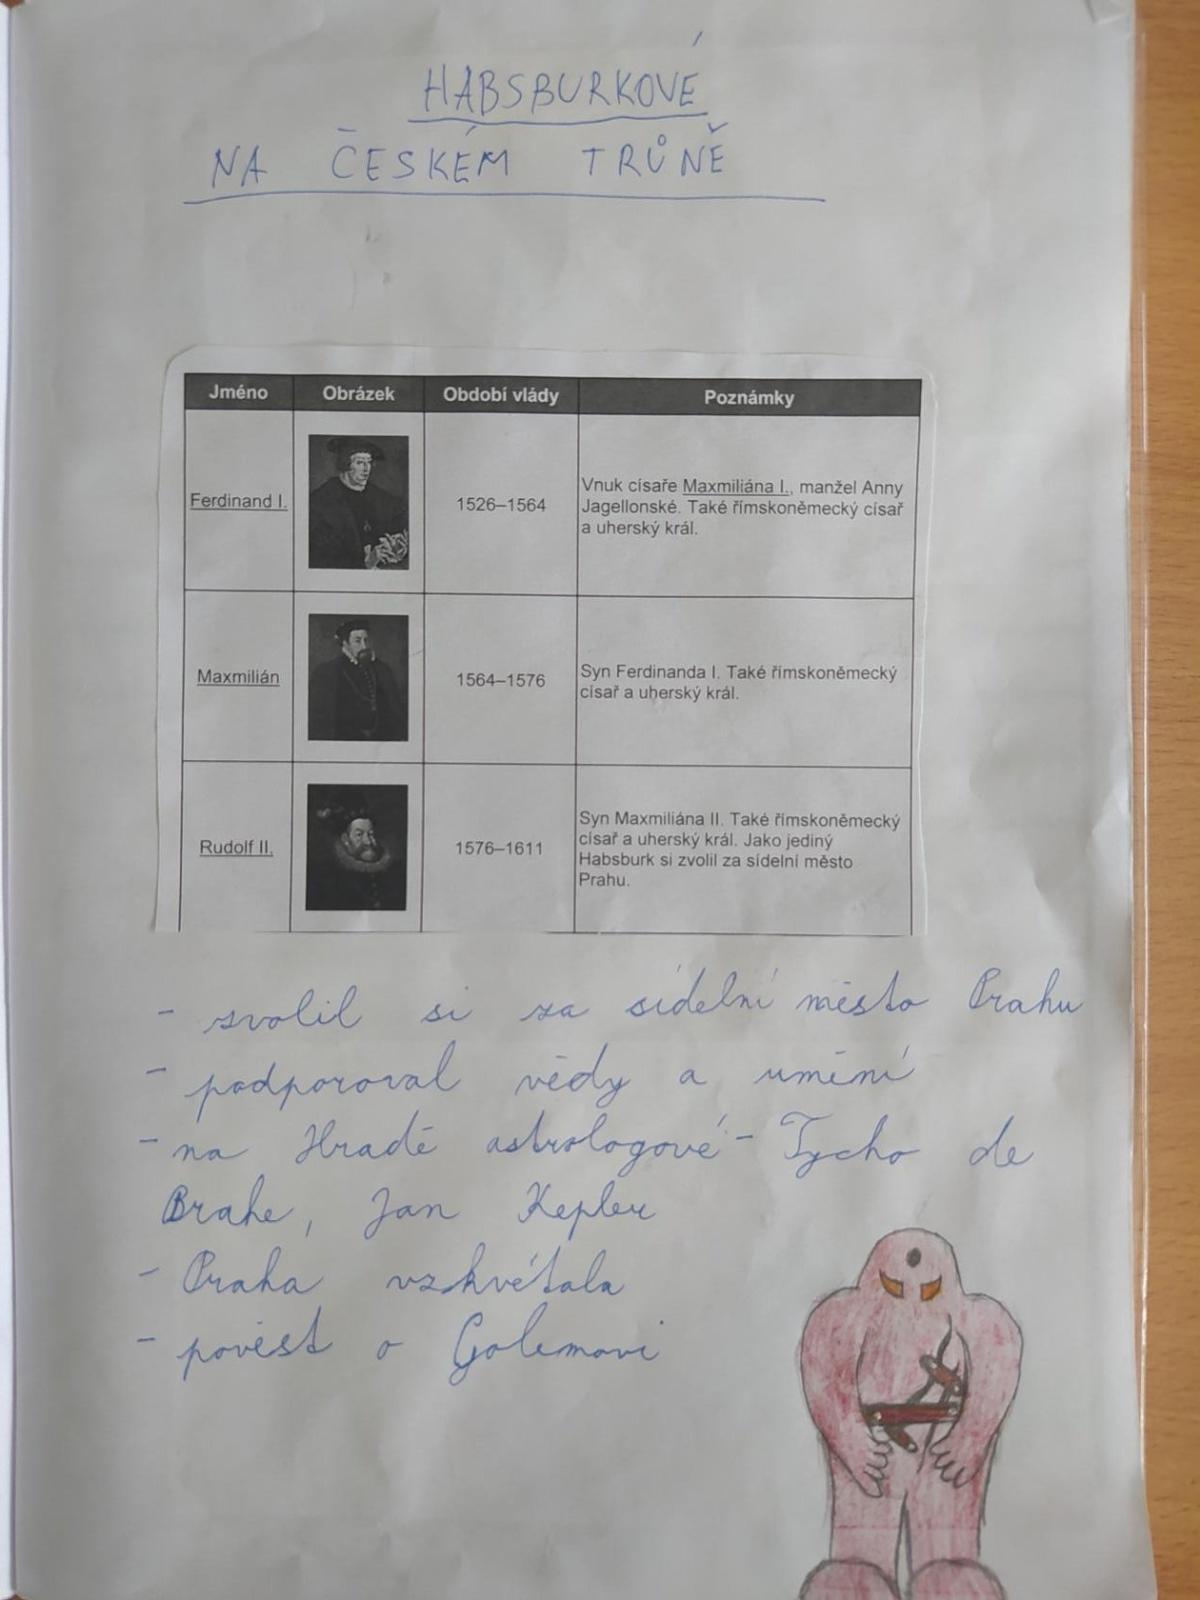 HABSBURKOVÉ
NA ČESKÉM TRŮNĚ
Jméno Obrázek Období vlády Poznámky
Ferdinand I. 1526–1564
Vnuk císaře Maxmiliána I., manžel Anny
Jagellonské. Také římskoněmecký císař
a uherský král.
Maxmilián 1564–1576
Syn Ferdinanda I. Také římskoněmecký
císař a uherský král.
Rudolf II. 1576–1611
Syn Maxmiliána II. Také římskoněmecký
císař a uherský král. Jako jediný
Habsburk si zvolil za sídelní město
Prahu.
- zvolil si za sídelní město Prahu
- podporoval vědy a umění
- na Hradě astrologové - Tycho de
Brahe, Jan Kepler
- Praha vzkvétala
- pověst o Golemovi